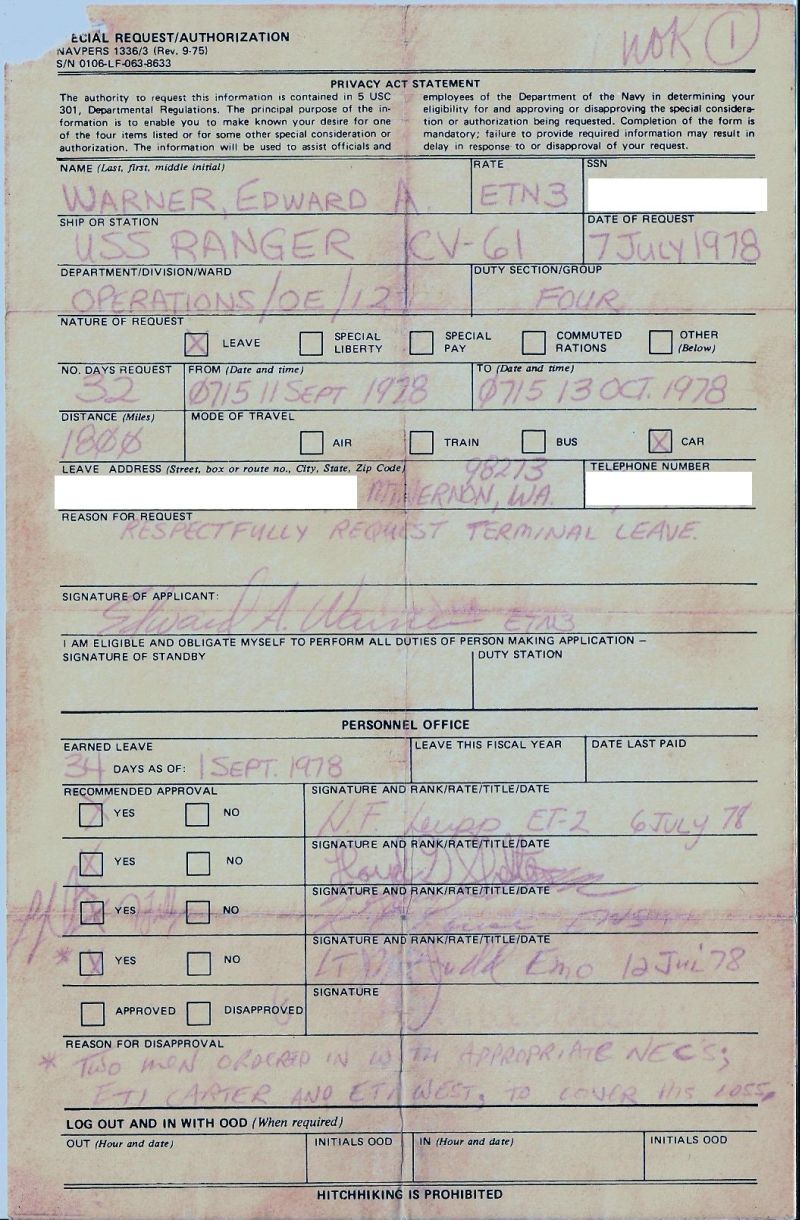 ECIAL REQUEST/AUTHORIZATION
NAVPERS 1336/3 (Rev. 9-75)
S/N 0106-LF-063-8633
WOK 1
PRIVACY ACT STATEMENT
The authority to request this information is contained in 5 USC
301, Departmental Regulations. The principal purpose of the in-
formation is to enable you to make known your desire for one
of the four items listed or for some other special consideration or
authorization. The information will be used to assist officials and
employees of the Department of the Navy in determining your
eligibility for and approving or disapproving the special considera-
tion or authorization being requested. Completion of the form is
mandatory; failure to provide required information may result in
delay in response to or disapproval of your request.
NAME (Last, first, middle initial) RATE SSN
WARNER, EDWARD A. ETN3
SHIP OR STATION DATE OF REQUEST
USS RANGER CV-61 7 JULY 1978
DEPARTMENT/DIVISION/WARD DUTY SECTION/GROUP
OPERATIONS/OE/12 FOUR
NATURE OF REQUEST
X LEAVE SPECIAL LIBERTY SPECIAL PAY COMMUTED RATIONS OTHER (Below)
NO. DAYS REQUEST FROM (Date and time) TO (Date and time)
32 0715 11 SEPT 1978 0715 13 OCT. 1978
DISTANCE (Miles) MODE OF TRAVEL
1800 AIR TRAIN BUS X CAR
LEAVE ADDRESS (Street, box or route no., City, State, Zip Code) 98273 TELEPHONE NUMBER
MT. VERNON, WA.
REASON FOR REQUEST
RESPECTFULLY REQUEST TERMINAL LEAVE.
SIGNATURE OF APPLICANT:
Edward A. Warner ETN3
I AM ELIGIBLE AND OBLIGATE MYSELF TO PERFORM ALL DUTIES OF PERSON MAKING APPLICATION –
SIGNATURE OF STANDBY DUTY STATION
PERSONNEL OFFICE
EARNED LEAVE LEAVE THIS FISCAL YEAR DATE LAST PAID
34 DAYS AS OF: 1 SEPT. 1978
RECOMMENDED APPROVAL SIGNATURE AND RANK/RATE/TITLE/DATE
X YES NO N.F. ET-2 6 JULY 78
SIGNATURE AND RANK/RATE/TITLE/DATE
X YES NO
SIGNATURE AND RANK/RATE/TITLE/DATE
X YES NO
SIGNATURE AND RANK/RATE/TITLE/DATE
* X YES NO LT Judd EMO 12 Jul '78
APPROVED DISAPPROVED SIGNATURE
REASON FOR DISAPPROVAL
* TWO MEN ORDERED IN WITH APPROPRIATE NEC'S;
ET1 CARTER AND WEST, TO COVER HIS LOSS.
LOG OUT AND IN WITH OOD (When required)
OUT (Hour and date) INITIALS OOD IN (Hour and date) INITIALS OOD
HITCHHIKING IS PROHIBITED